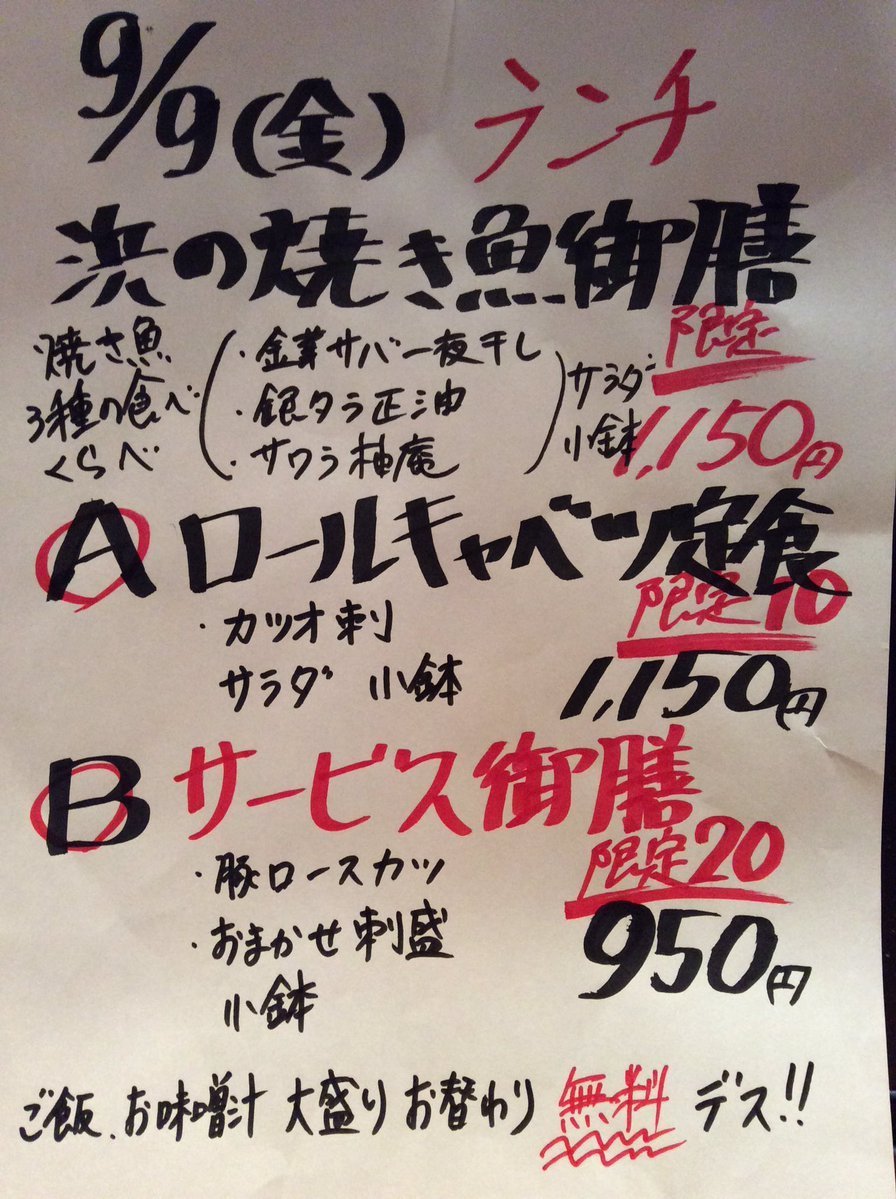 9/9(金) ランチ
浜の焼き魚御膳
限定
焼き魚
3種の食べ
くらべ
・金華サバ一夜干し
・銀タラ正油
・サワラ柚庵
サラダ
小鉢
1,150円
A ロールキャベツ定食
限定10
・カツオ刺
サラダ 小鉢
1,150円
B サービス御膳
限定20
・豚ロースカツ
・おまかせ刺盛
小鉢
950円
ご飯、お味噌汁 大盛り お替わり 無料 デス!!